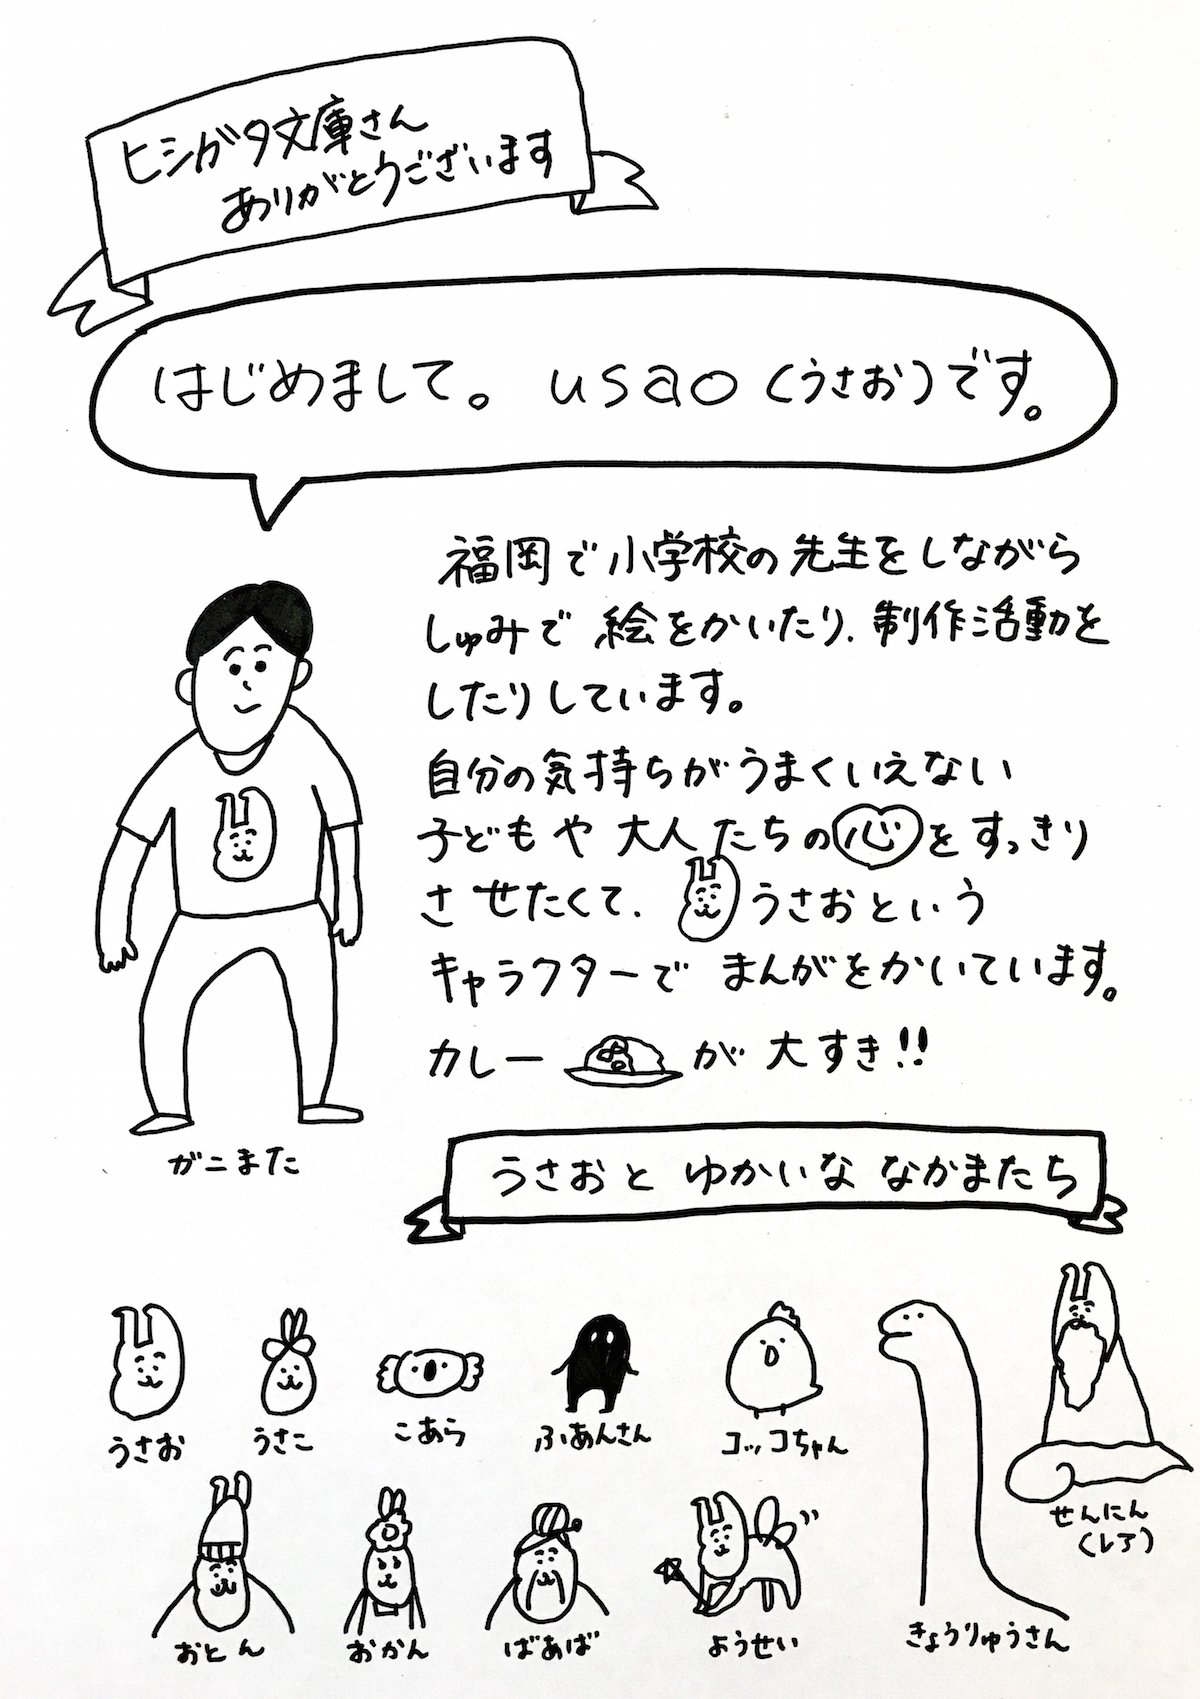 ヒシガタ文庫さん
ありがとうございます
はじめまして。usao(うさお)です。
福岡で小学校の先生をしながら
しゅみで絵をかいたり、制作活動を
したりしています。
自分の気持ちがうまくいえない
子どもや大人たちの心をすっきり
させたくて、うさおという
キャラクターでまんがをかいています。
カレーが大すき!!
ガニまた
うさおとゆかいななかまたち
うさお
うさこ
こあら
ふあんさん
コッコちゃん
せんにん
(レア)
おとん
おかん
ばあば
ようせい
きょうりゅうさん